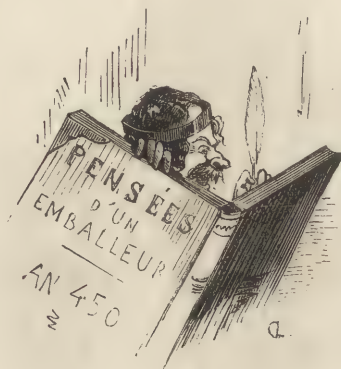 PENSÉES
D'UN
EMBALLEUR
AN 450